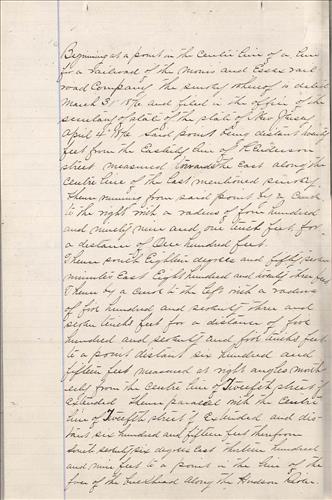 Beginning at a point in the centre line of a line
for a Railroad of the Morris and Essex rail
road Company the survey whereof is dated
March 31 and filed in the office of the
secretary of state of the state of New Jersey
April 4 Said point being distant twenty
feet from the Easterly line of Henderson
street measured towards the East along the
centre line of the last mentioned survey
Thence running from said point by a curve
to the right with a radius of four hundred
and ninety nine and one tenth feet, for
a distance of One hundred feet.
Thence south Eighteen degrees and fifty seven
minutes East Eight hundred and twenty three feet
Thence by a curve to the left with a radius
of five hundred and seventy three and
seven tenths feet for a distance of five
hundred and seventy and five tenths feet
to a point distant six hundred and
fifteen feet measured at right angles north
erly from the centre line of Twelfth street if
extended thence parallel with the Centre
line of Twelfth street if extended and dis-
tant six hundred and fifteen feet therefrom
South seventy six degrees East thirteen hundred
and nine feet to a point in the line of the
face of the Bulkhead along the Hudson River.